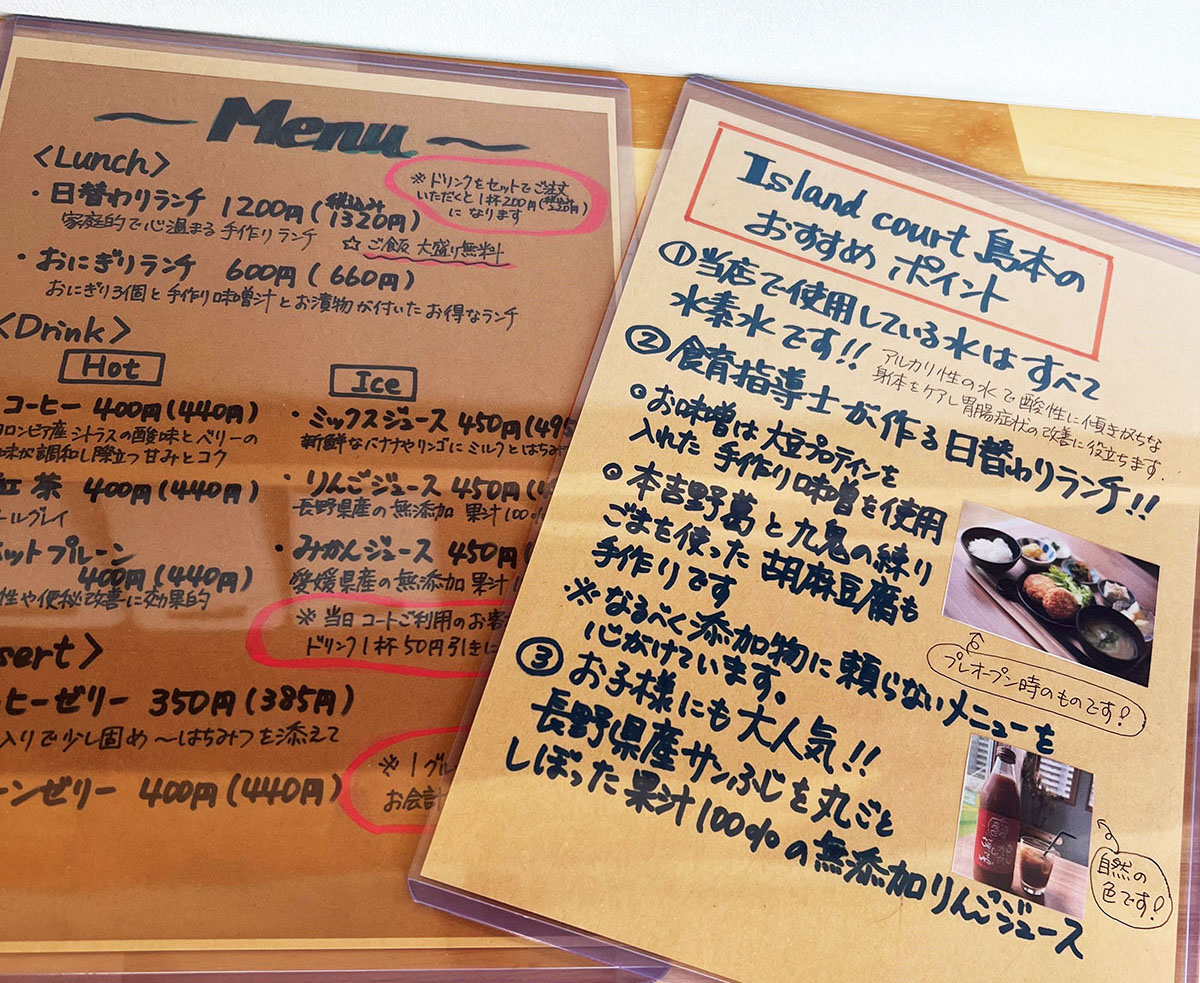 ~ Menu ~
<Lunch>
・日替わりランチ 1200円(税込み1320円)
家庭的で心温まる手作りランチ ☆ご飯大盛り無料
※ドリンクをセットでご注文
いただくと1杯200円(税込み220円)
になります
・おにぎりランチ 600円(660円)
おにぎり3個と手作り味噌汁とお漬物が付いたお得なランチ
<Drink>
Hot
コーヒー 400円(440円)
コロンビア産シトラスの酸味とベリーの
味が調和し際立つ甘みとコク
紅茶 400円(440円)
ールグレイ
ホットプルーン
400円(440円)
性や便秘改善に効果的
Ice
・ミックスジュース 450円(495
新鮮なバナナやリンゴにミルクとはちみ
・りんごジュース 450円(4
長野県産の無添加 果汁100%
・みかんジュース 450円(
愛媛県産の無添加 果汁1
※当日コートご利用のお客
ドリンク1杯50円引きに
sert>
ーヒーゼリー 350円(385円)
入りで少し固め〜はちみつを添えて
ーンゼリー 400円(440円)
※1グル
お会計
Island court 島本の
おすすめポイント
①当店で使用している水はすべて
水素水です!!
アルカリ性の水で酸性に傾きがちな
身体をケアし胃腸症状の改善に役立ちます.
②食育指導士が作る日替わりランチ!!
◦お味噌は大豆プロテインを
入れた手作り味噌を使用
◦本吉野葛と九鬼の練り
ごまを使った胡麻豆腐も
手作りです
※なるべく添加物に頼らないメニューを
心がけています。
プレオープン時のものです!
③お子様にも大人気!!
長野県産サンふじを丸ごと
しぼった果汁100%の無添加りんごジュース
自然の
色です!